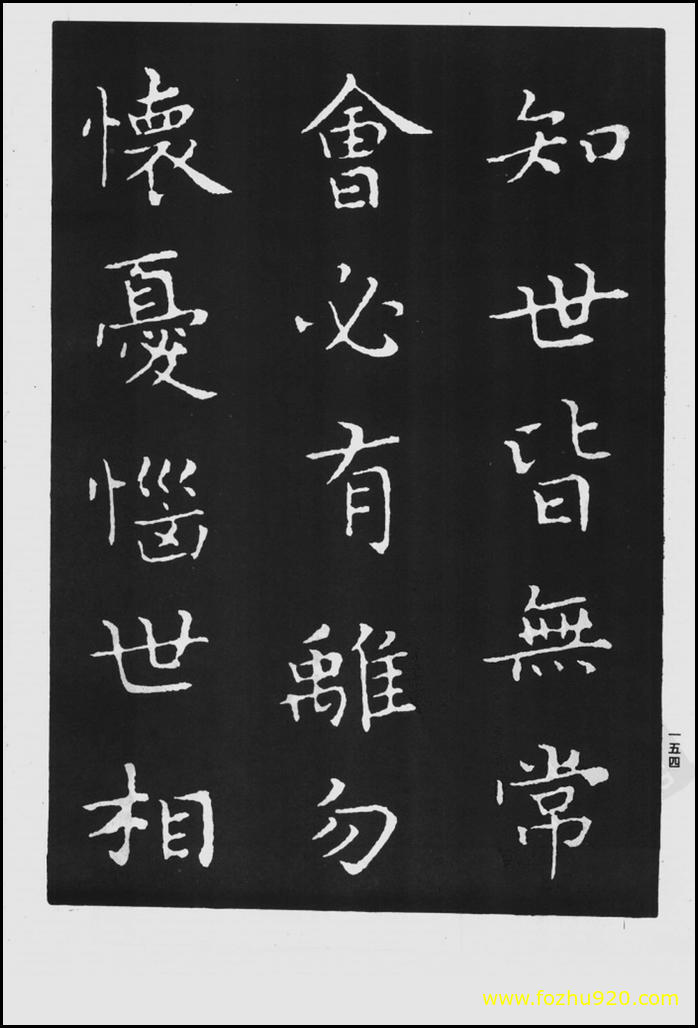 知世皆無常
會必有離勿
懷憂惱世相
一五四
www.fozhu920.com